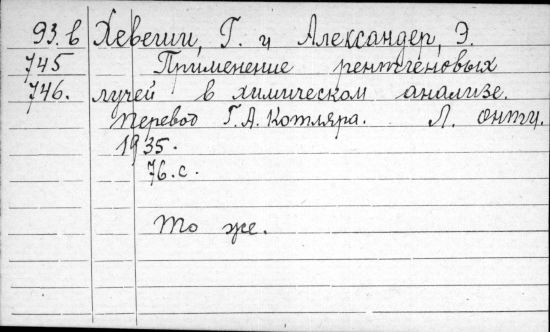 93.в Хевеши, Г. и Александер, Э.
745 Применение рентгеновых
746. лучей в химическом анализе.
Перевод Г.А. Котляра. Л. ОНТИ.
1935.
76.с.
То же.